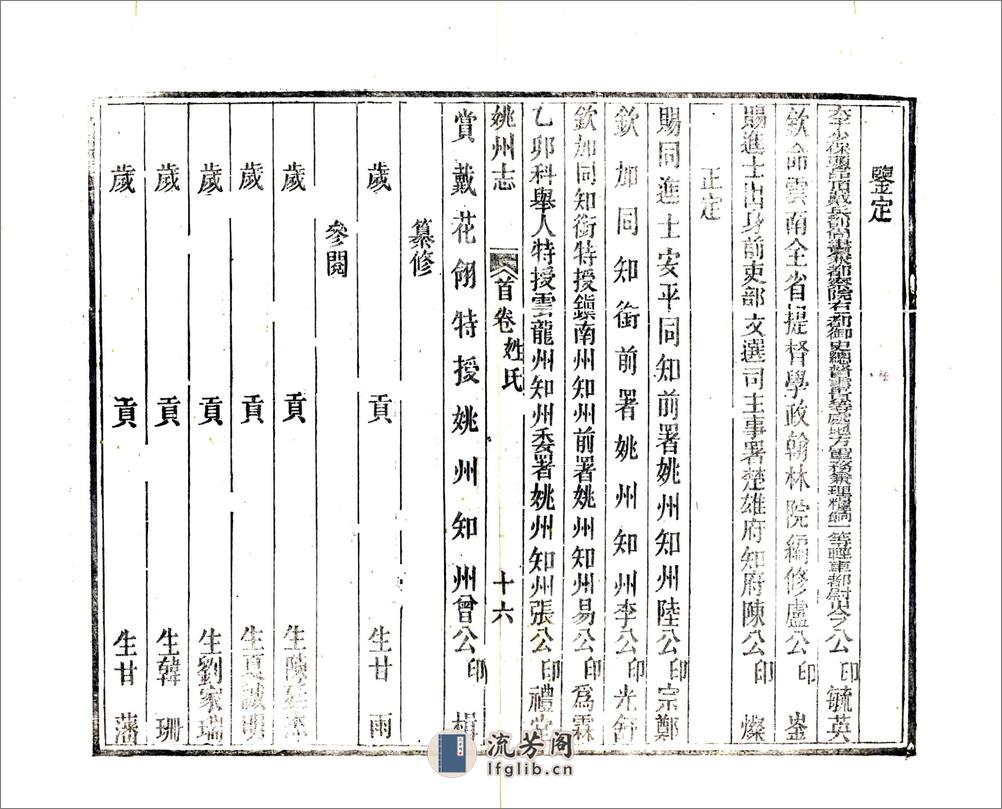 鑒定
太子少保頭品頂戴兵部尚書兼都察院右都御史總督雲貴等處地方軍務兼理糧餉一等輕車都尉岑公印毓英
欽命雲南全省提督學政翰林院編修盧公印崟
賜進士出身前吏部文選司主事署楚雄府知府陳公印燦
正定
賜同進士安平同知前署姚州知州陸公印宗鄭
欽加同知銜前署姚州知州李公印光舒
欽加同知銜特授鎮南州知州前署姚州知州易公印為霖
乙卯科舉人特授雲龍州知州委署姚州知州張公印禮堂
姚州志 首卷 姓氏 十六
賞戴花翎特授姚州知州曾公印楫
纂修
歲貢生甘雨
參閱
歲貢生陳廷
歲貢生夏誠明
歲貢生劉家瑞
歲貢生韓珊
歲貢生甘藩
流芳阁
lfglib.cn